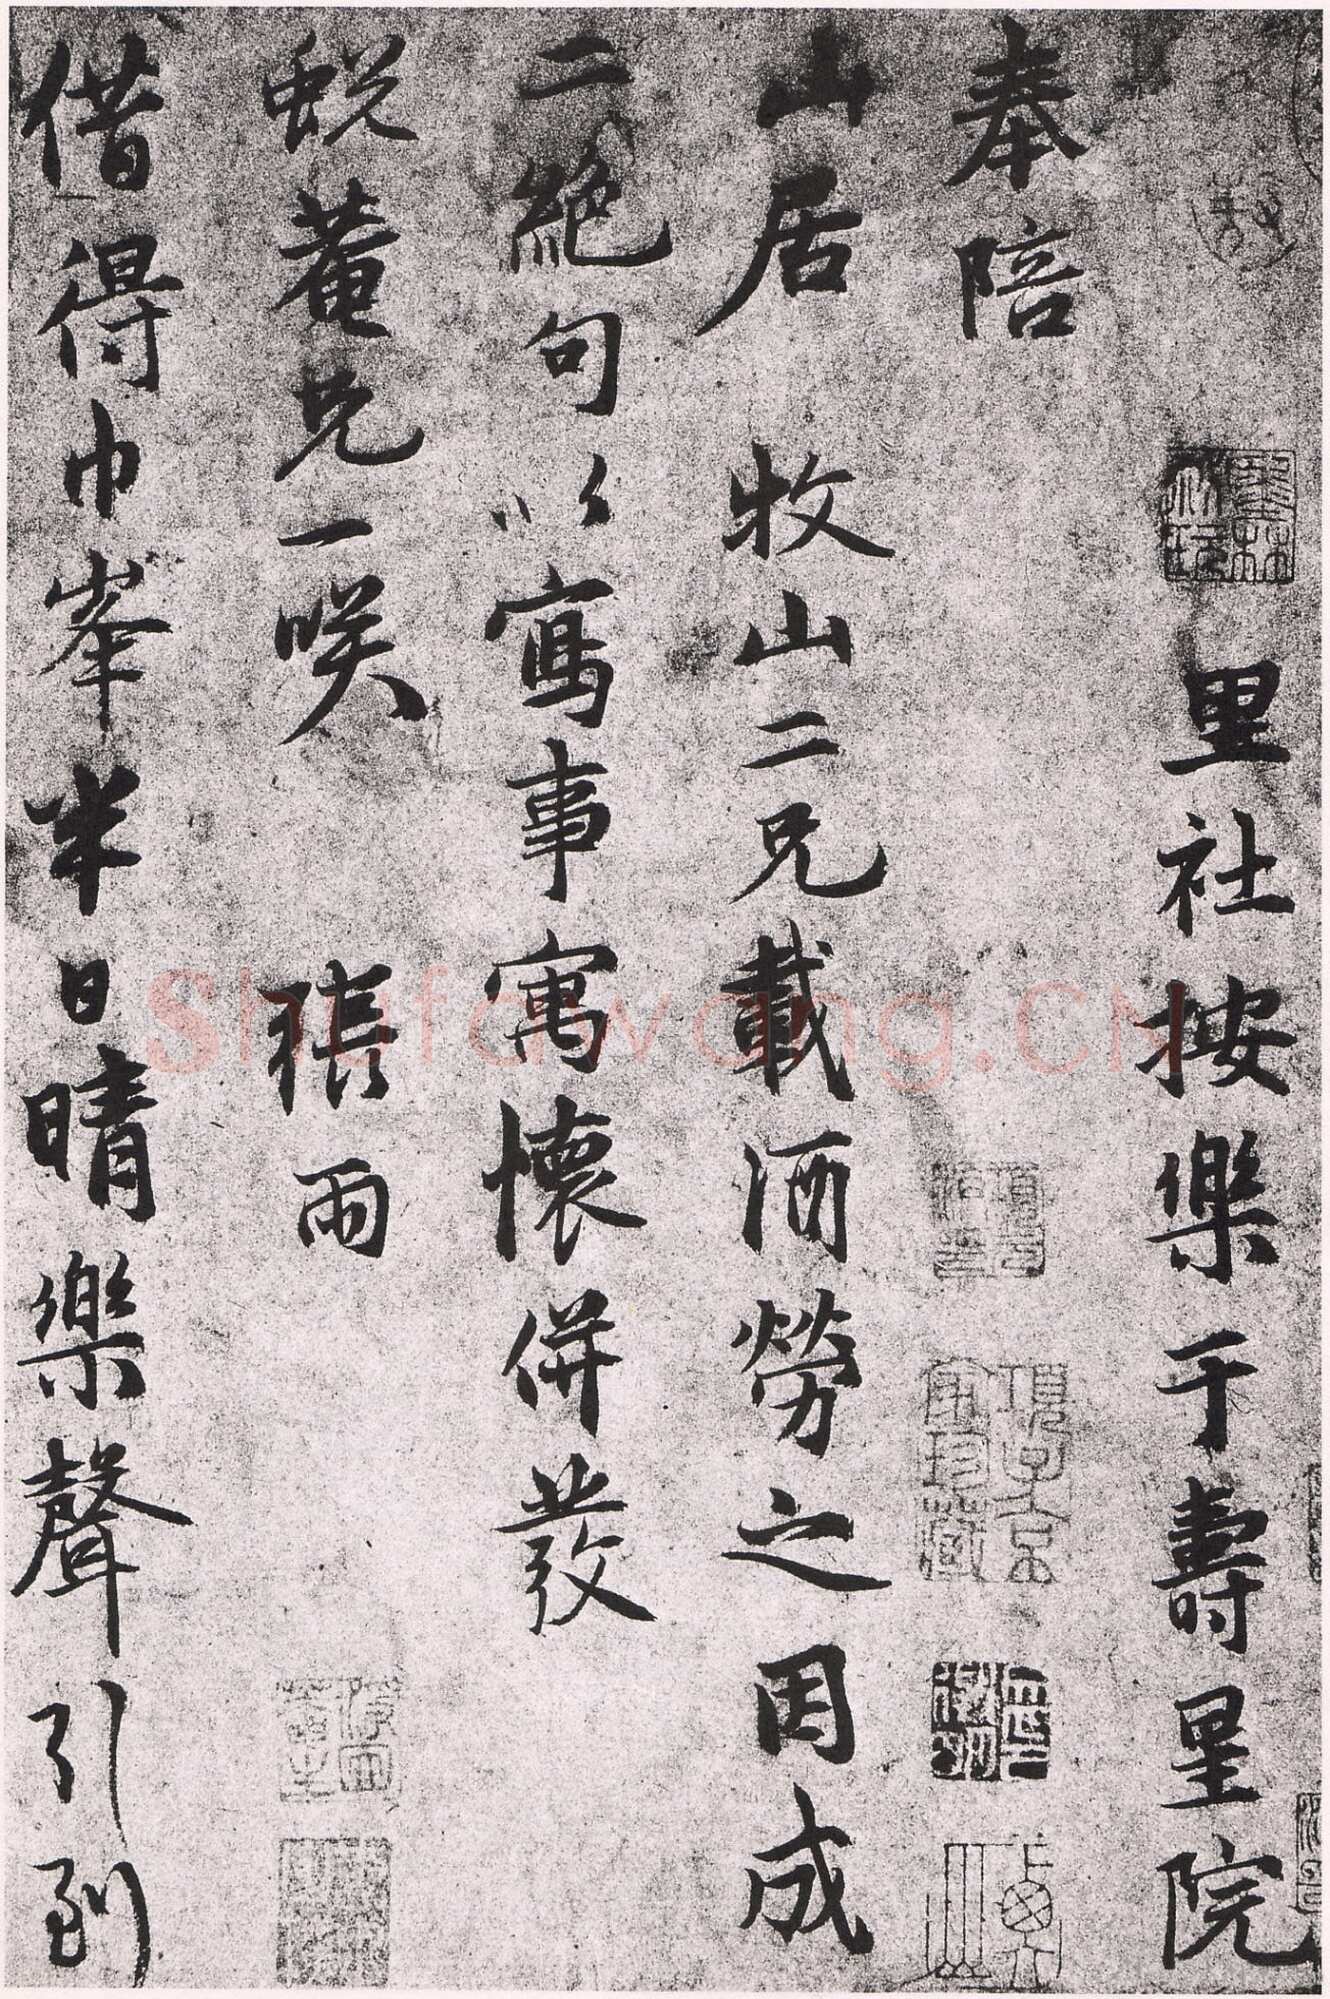 里社按樂于壽星院
奉陪
山居 牧山二兄載酒勞之因成
二絕句以寫事寓懷併發
蛻菴兄一咲 張雨
借得巾峯半日晴樂聲引到
項子京家珍藏
墨林
Shufawang.CN